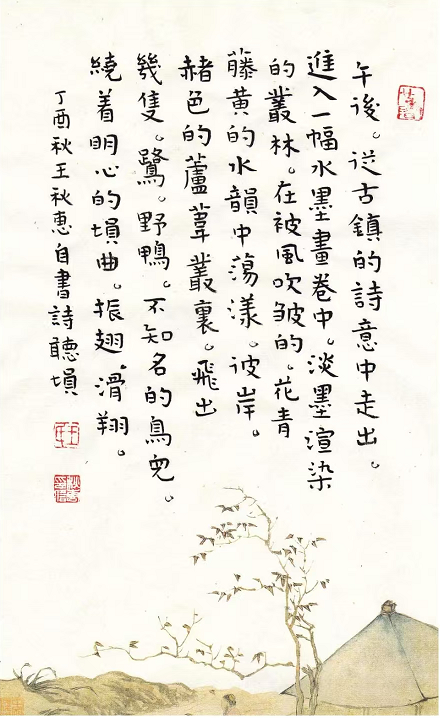 午後。從古鎮的詩意中走出。
進入一幅水墨畫卷中。淡墨渲染
的叢林。在被風吹皱的。花青
藤黄的水韻中蕩漾。彼岸。
赭色的蘆葦叢裏。飛出
幾隻。鷺。野鴨。不知名的鳥兒。
繞着明心的塤曲。振翅。滑翔。
丁酉秋王秋惠自書詩聽塤